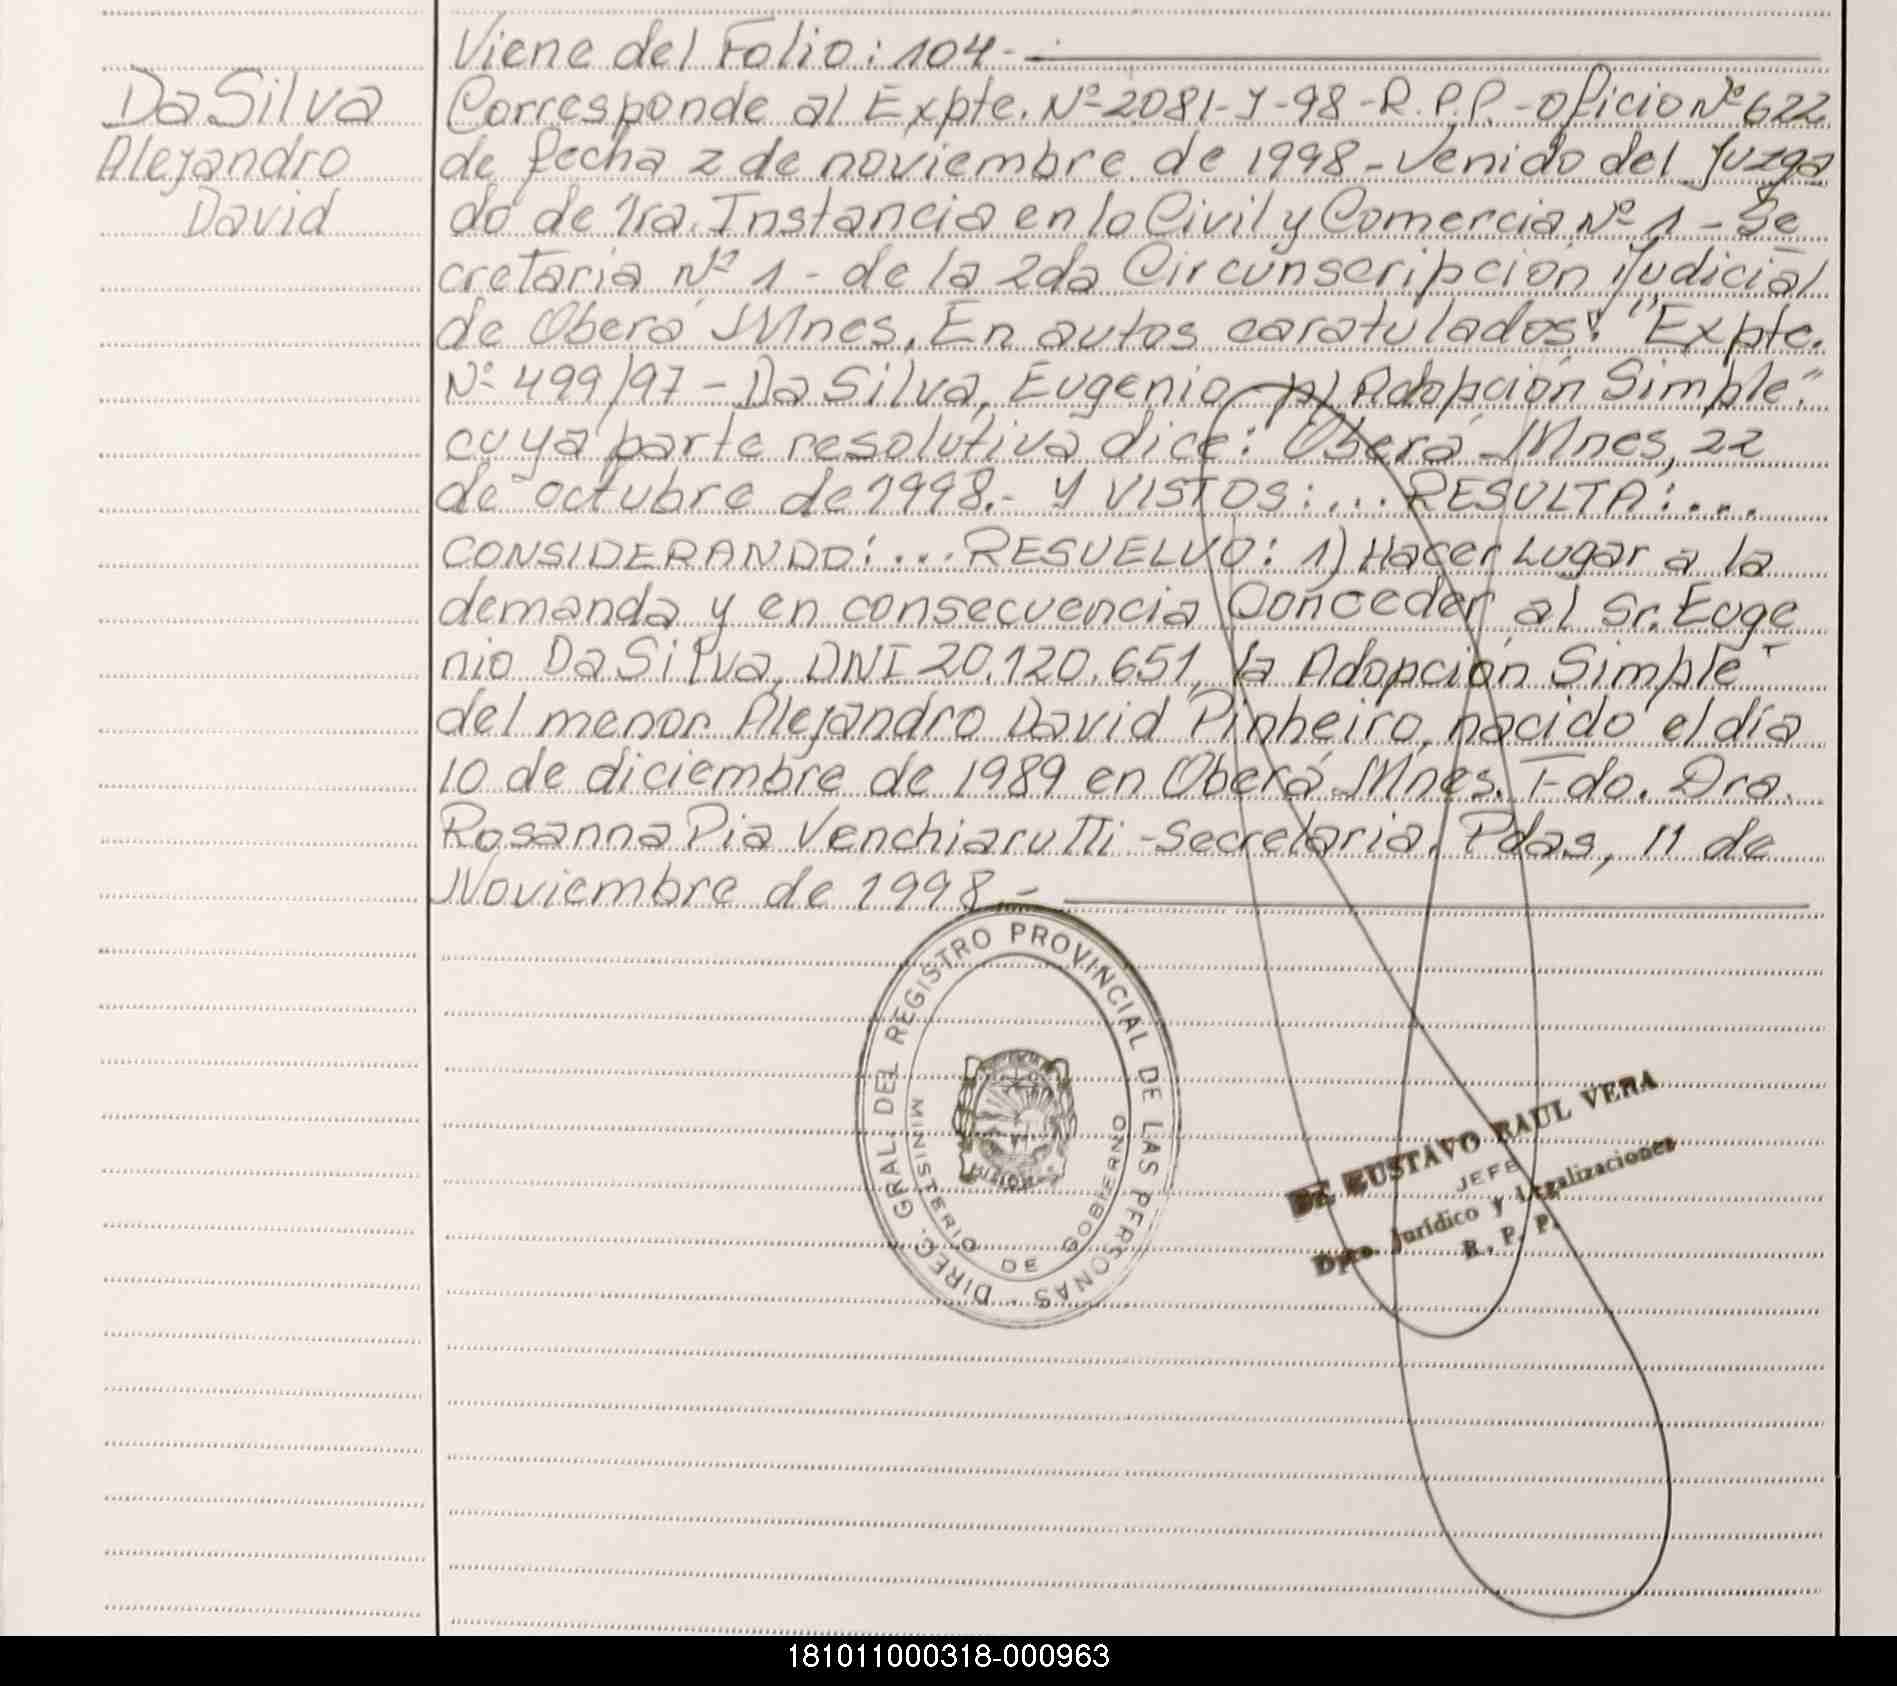 Viene del Folio: 104.-
Da Silva
Alejandro
David
Corresponde al Expte. Nº 2081-J-98-R.P.P.-oficio Nº 622
de fecha 2 de noviembre de 1998-venido del Juzga
do de 1ra. Instancia en lo Civil y Comercial Nº 1 - Se
cretaria Nº 1 - de la 2da Circunscripción Judicial
de Oberá Mnes. En autos caratulados: "Expte.
Nº 499/97 - Da Silva, Eugenio p/ Adopción Simple".
cuya parte resolutiva dice: "Oberá Mnes, 22
de octubre de 1998.- Y VISTOS:... RESULTA:...
CONSIDERANDO:... RESUELVO: 1) Hacer Lugar a la
demanda y en consecuencia Conceder al Sr. Euge
nio Da Silva, DNI 20.120.651, la Adopción Simple
del menor Alejandro David Pinheiro, nacido el día
10 de diciembre de 1989 en Oberá Mnes. Fdo. Dra.
Rosanna Pia Venchiarutti - Secretaria. Pdas, 11 de
Noviembre de 1998.-
DIREC. GRAL. DEL REGISTRO PROVINCIAL DE LAS PERSONAS -
MINISTERIO DE GOBIERNO
MISIONES
Dr. GUSTAVO RAUL VERA
JEFE
Dpto. Jurídico y Legalizaciones
R. P. P.
181011000318-000963